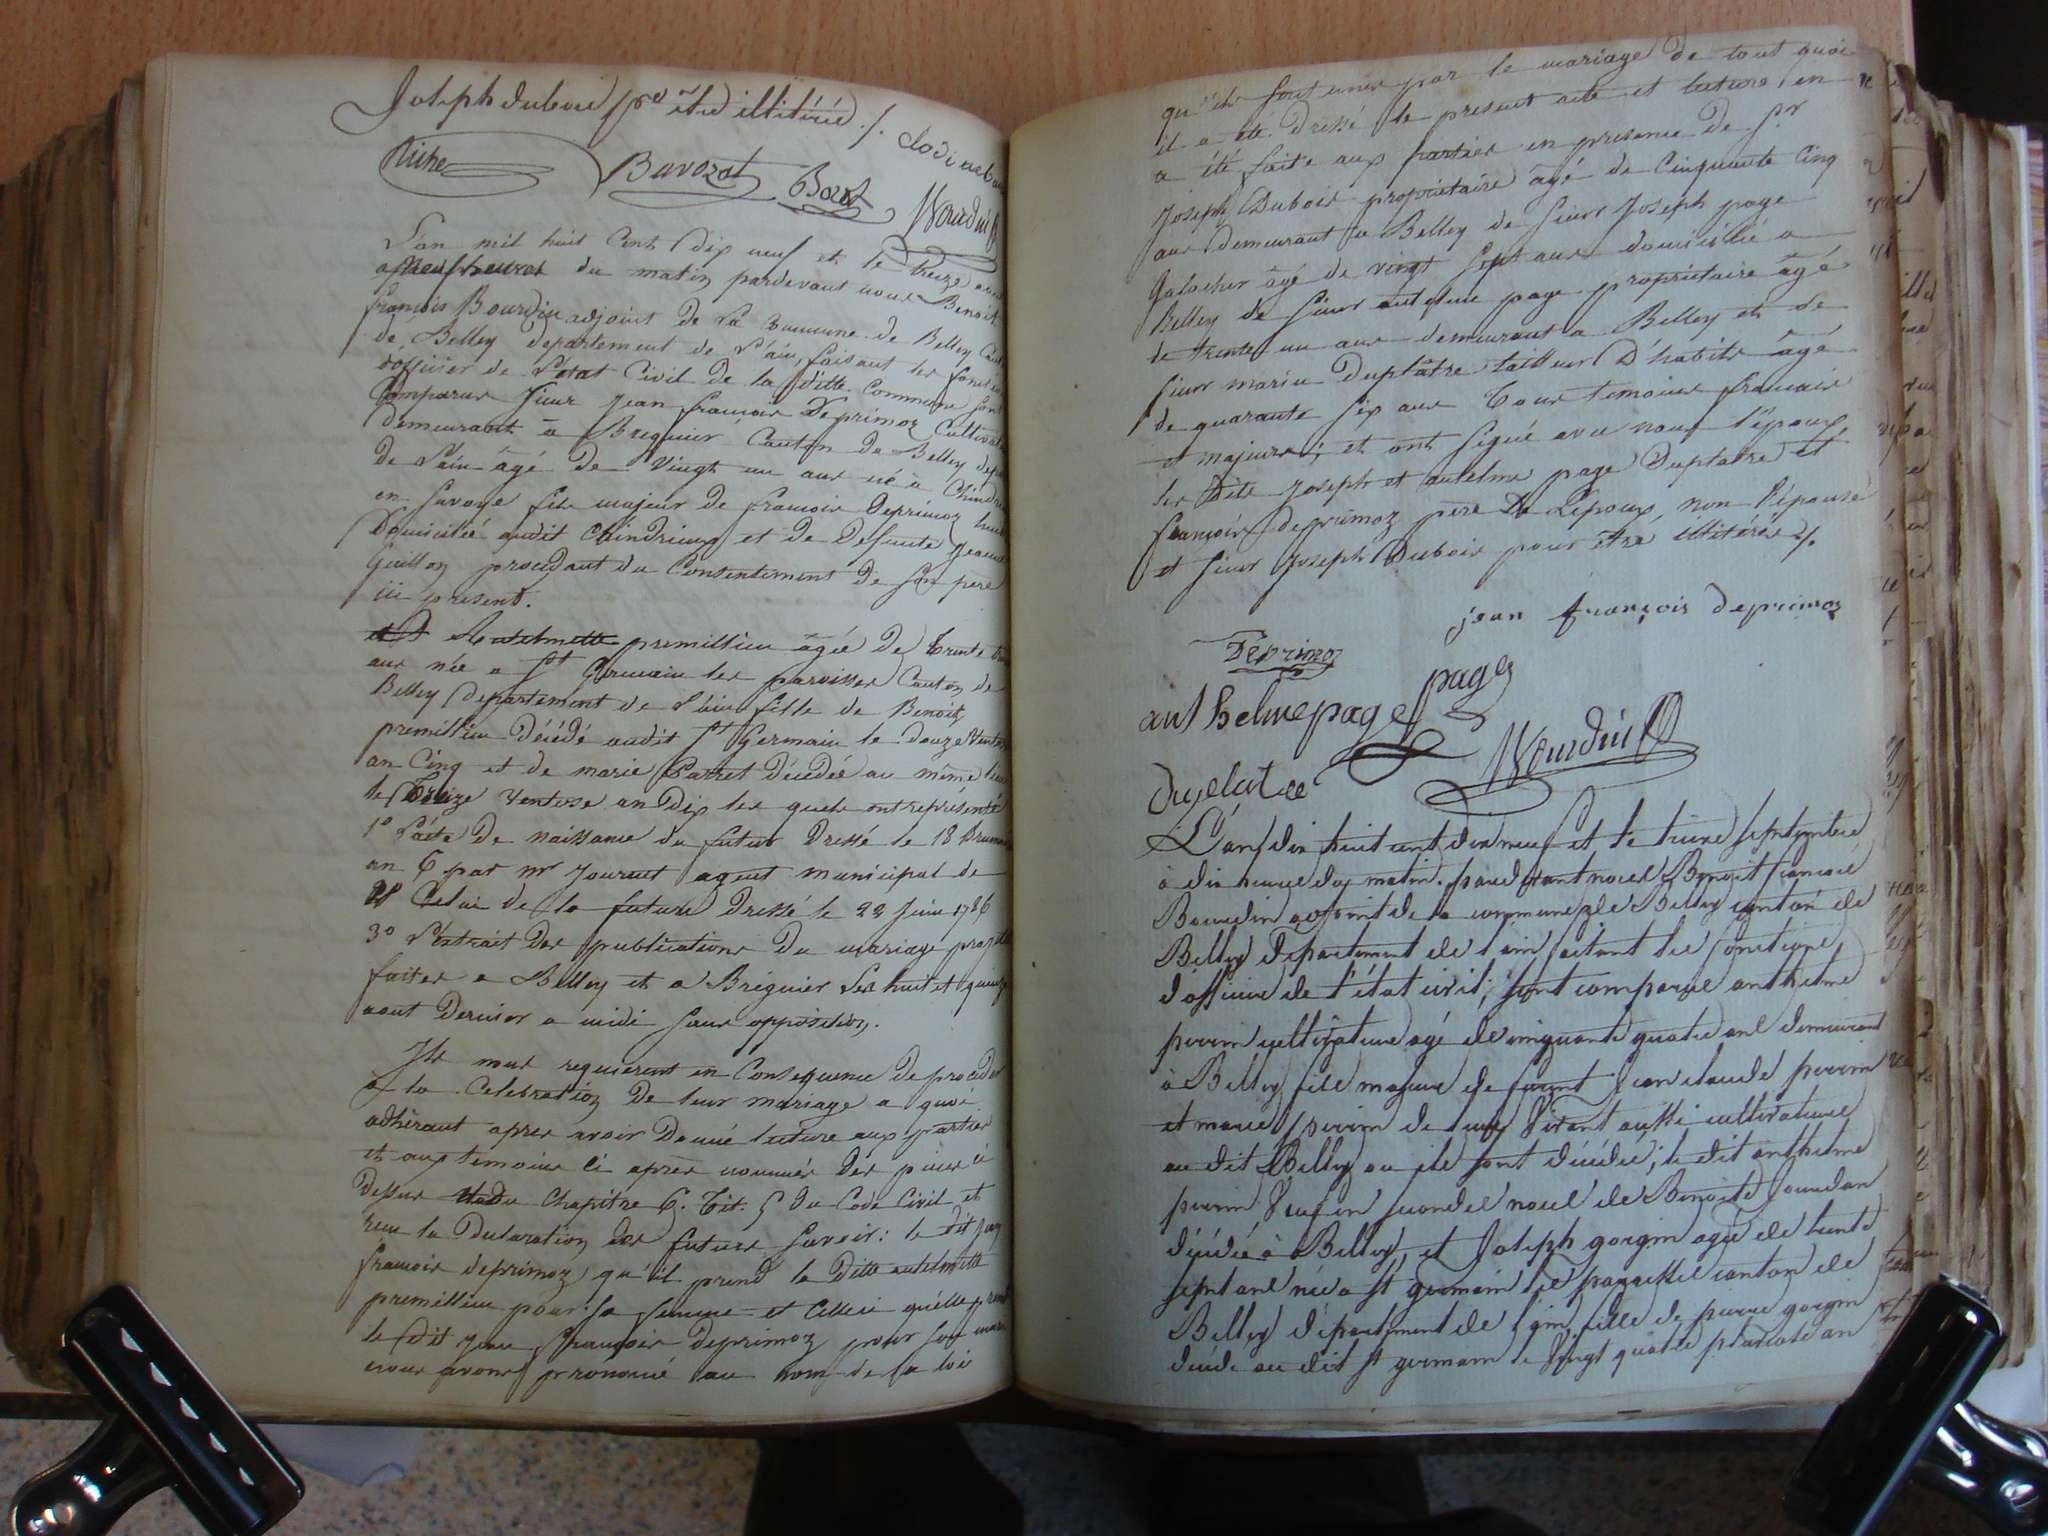 Joseph dubois pr être illitérée ./.
Riche Bavozat Borat
Bourdin
L'an mil huit cent dix neuf et le treize
a neuf heures du matin pardevant nous Benoit
françois Bourdin adjoint de la commune de Belley
de Belley departement de L'ain, faisant les
d'officier de L'etat Civil de la ditte Commune sont
Comparus sieur Jean françois Deprimoz
demeurant a Bregnier Canton de Belley
de L'ain âgé de vingt un ans né a
en Savoye fils majeur de françois Deprimoz
Domicilié audit Chindrieux et de Defunte Jeanne
Guillon procédant du Consentement de son père
ici present.
Antelmette premillieu âgée de trente
ans née a St Germain les paroisses Canton de
Belley departement de L'ain fille de Benoit
premillieu Décédé audit St Germain le douze
an Cinq et de marie Parret Décédée au même lieu
le treize Ventose an Dix les quels ont représenté
1° L'acte De naissance du futur Dressé le 18
an 6 par mr Jourent agent municipal de
2° Celui de la future Dressé le 22 Juin 1786
3° L'extrait Des publications Du mariage
faites a Belley et a Brégnier Les huit et quinze
aout Dernier a midi sans opposition.
Ils nous requierent en Consequence de procéder
a la Celebration De leur mariage a quoi
adhérant apres avoir Donné lecture aux parties
et aux temoins ci après nommés Des pieces ci
Dessus du Chapitre 6. Tit: 5 du Code Civil et
recu la Declaration des futurs savoir: le dit Jean
françois deprimoz qu'il prend la Ditte antelmette
premillieu pour sa femme et Celleci qu'elle prend
le Dit Jean françois Deprimoz pour son mari
nous avons prononcé au nom de la loi
qu'ils sont unis par le mariage de tout quoi
il a été Dressé le present acte et lecture en
a été faite aux parties en presence De Sr
Joseph Dubois propriétaire âgé de Cinquante Cinq
ans demeurant a Belley de sieur Joseph page
âgé de vingt sept ans domicilié a
Belley de sieur antelme page propriétaire âgé
de trente un ans demeurant a Belley et de
sieur marin Duplâtre tailleur D'habits âgé
de quarante six ans tous temoins francais
et majeurs; et ont signé avec nous l'époux
les dits Joseph et antelme page Duplatre et
françois deprimoz père De L'époux, non l'épouse
et sieur Joseph Dubois pour être illitérés ./.
jean françois deprimoz
Déprimoz
page
anthelme page
Bourdin
Duplatre
L'an dix huit cent dix neuf et le treize septembre
à dix heures du matin. pardevant nous Benoit francois
Bourdin adjoint de la commune de Belley canton de
Belley departement de l'ain faisant les fonctions
d'officier de l'état civil; sont comparus anthelme
perrin cultivateur agé de cinquante quatre ans demeurant
à Belley fils majeur de feu Jean claude perrin
et marie perrin de leur vivant aussi cultivateurs
au dit Belley ou ils sont décédés; le dit anthelme
perrin veuf en secondes noces de Benoite Jourdan
décédée à Belley, et Joseph gorgin agée de trente
sept ans née a st germain les paroisses canton de
Belley département de l'ain fille de pierre gorgin
décédé au dit st germain le vingt quatre pluviose an